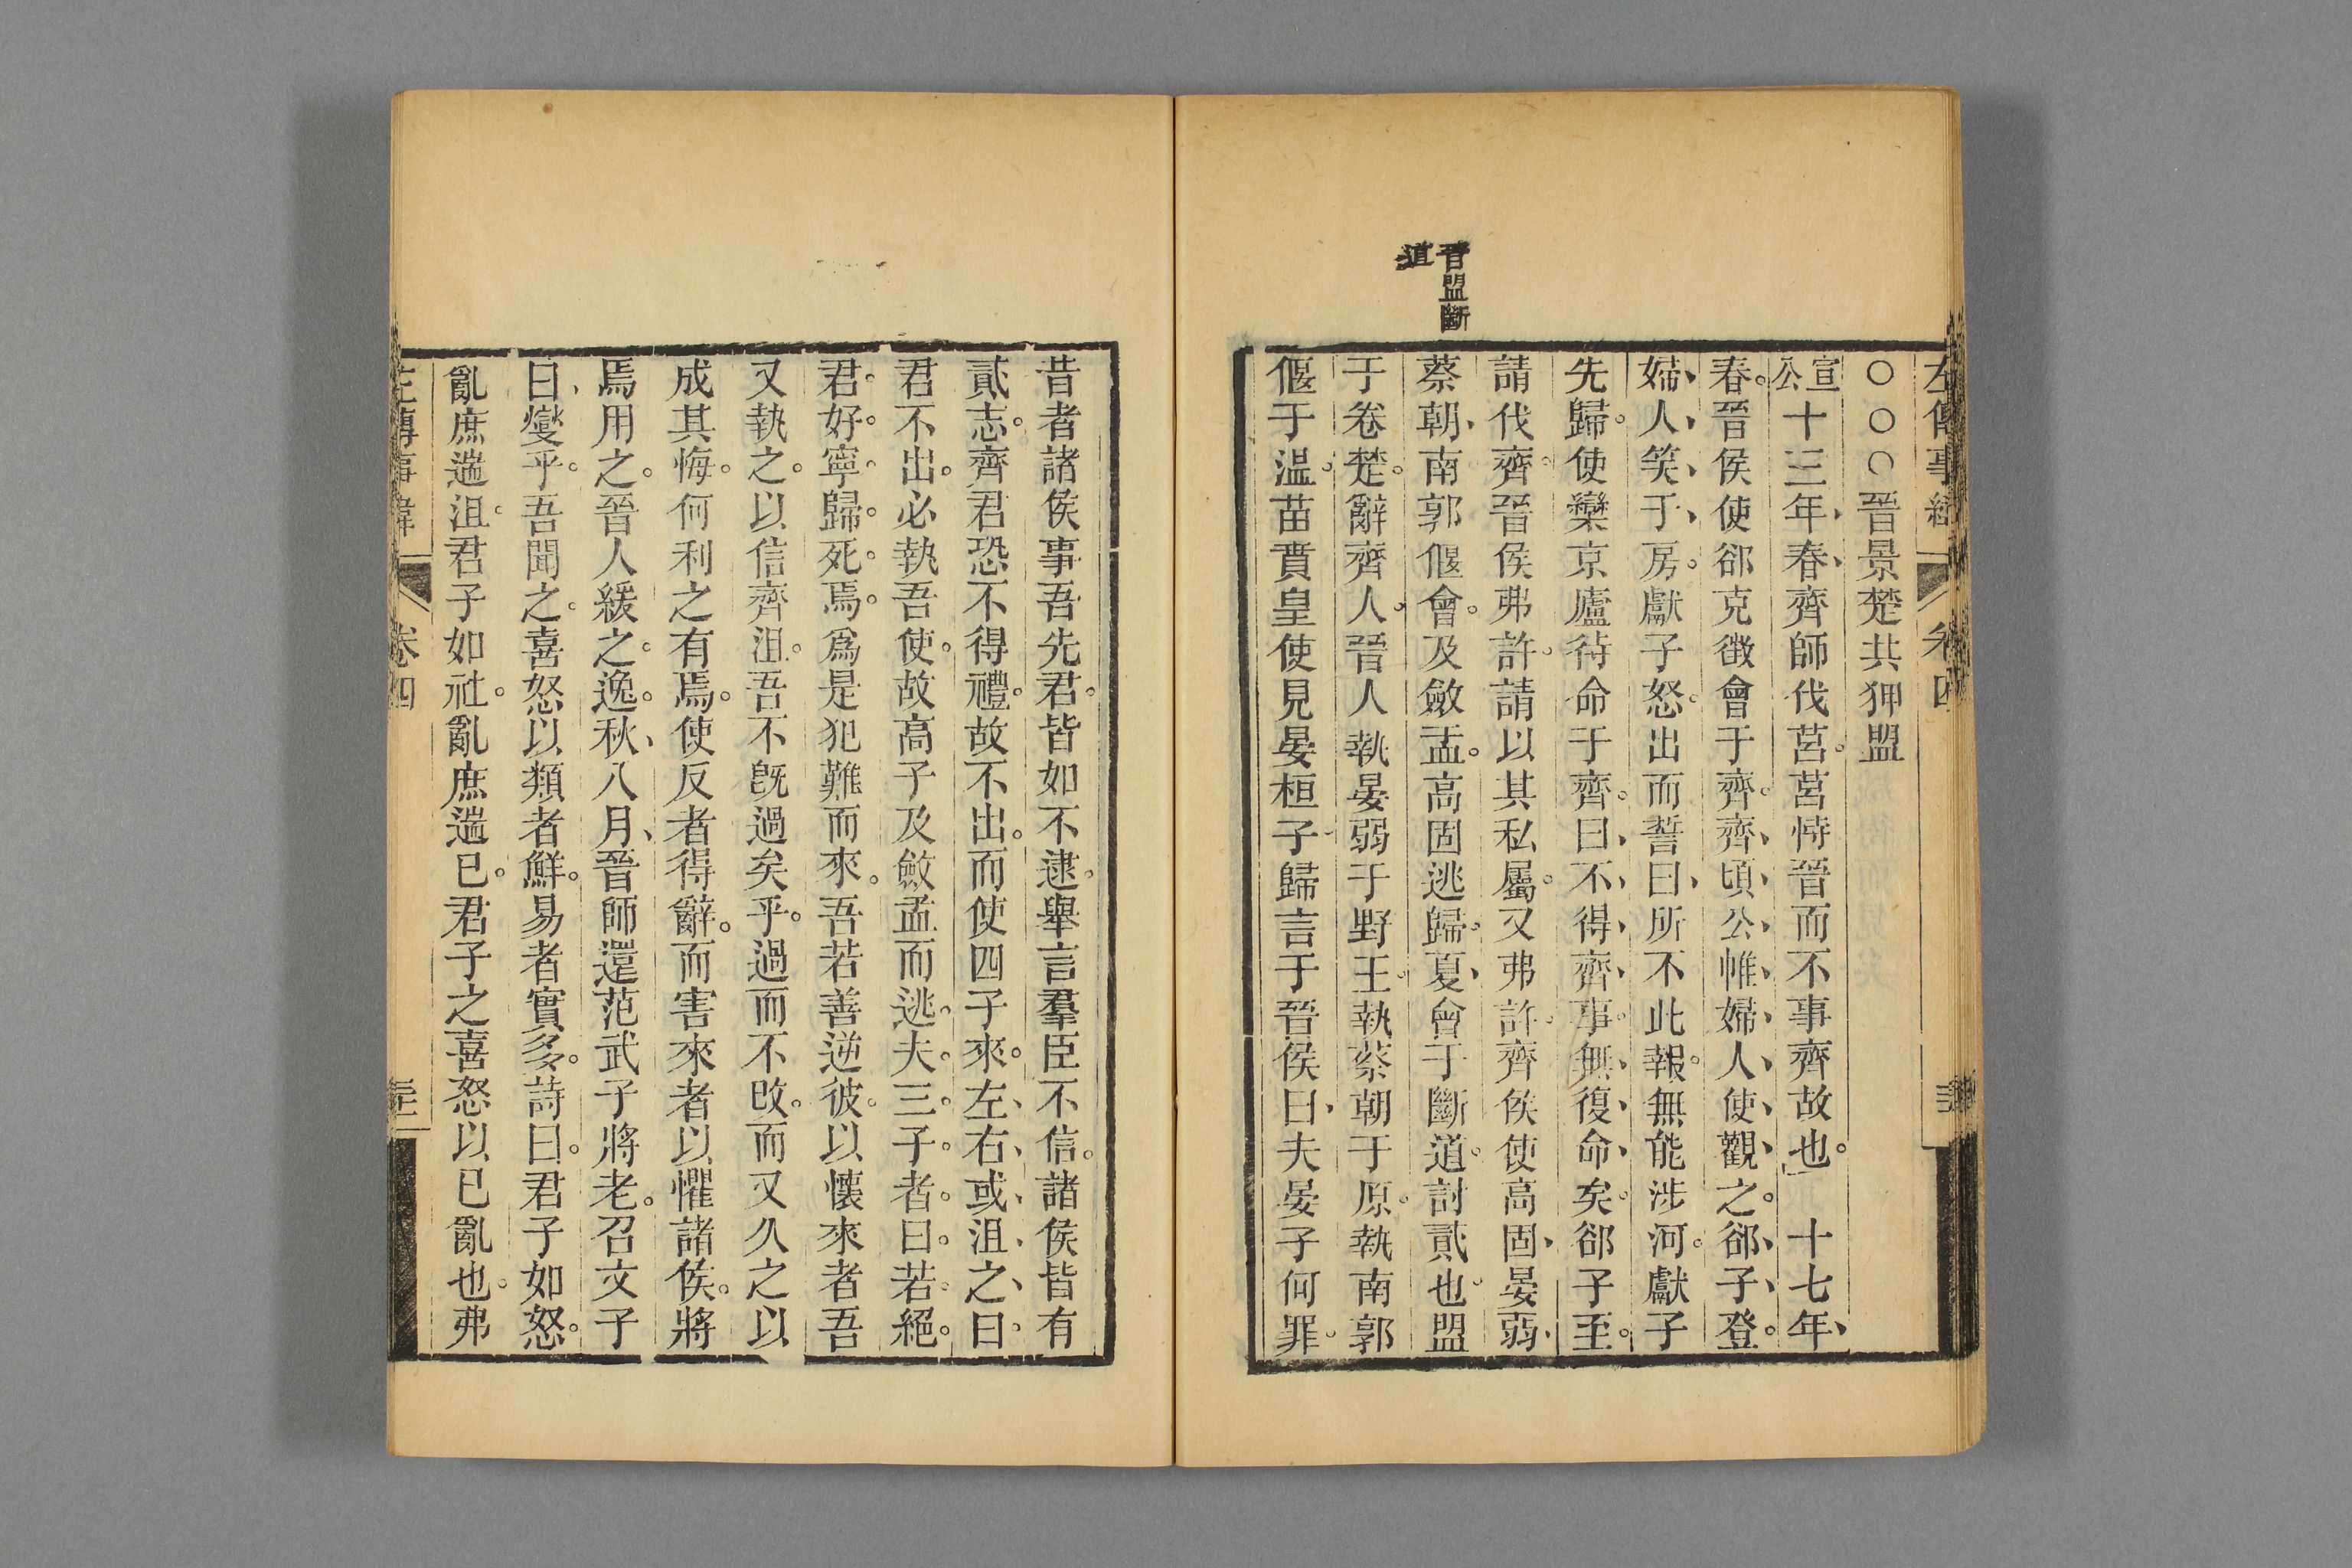 左傳事緯 卷四
○○○晉景楚共狎盟
宣公十三年、春、齊師伐莒。莒恃晉而不事齊故也。 十七年、
春。晉侯使郤克徵會于齊。齊、頃、公、帷、婦、人、使、觀、之。郤、子、登。
婦、人、笑、于、房。獻子怒。出而誓曰、所不此報。無能涉河。獻子
先歸。使欒京廬待命于齊。曰、不、得、齊、事。無、復、命、矣。郤子至。
請伐齊。晉侯弗許。請以其私屬。又弗許。齊侯使高固、晏弱、
蔡朝、南郭偃會。及斂盂。高固逃歸。夏、會于斷道。討貳也。盟
晉盟斷
道
于卷楚。辭齊人。晉人執晏弱于野王。執蔡朝于原。執南郭
偃于溫。苗賁皇使見晏桓子。歸言于晉侯曰、夫晏子何罪。
昔者諸侯事吾先君。皆如不逮。舉言羣臣不信。諸侯皆有
貳志。齊君恐不得禮。故不出。而使四子來。左、右、或、沮、之、曰、
君不出。必執吾使。故高子及斂盂而逃。夫。三。子。者。曰。若。絕。
君。好。寧。歸。死。焉。爲是犯難而來。吾若善逆彼。以懷來者。吾
又執之。以信齊沮。吾不旣過矣乎。過而不改。而又久之。以
成其悔。何利之有焉。使反者得辭。而害來者。以懼諸侯。將
焉用之。晉人緩之。逸。秋、八月、晉師還。范武子將老。召文子
曰、燮乎。吾聞之。喜怒以類者鮮。易者實多。詩曰。君子如怒。
亂庶遄沮。君子如祉。亂庶遄已。君子之喜怒以已亂也。弗
左傳事緯 卷四